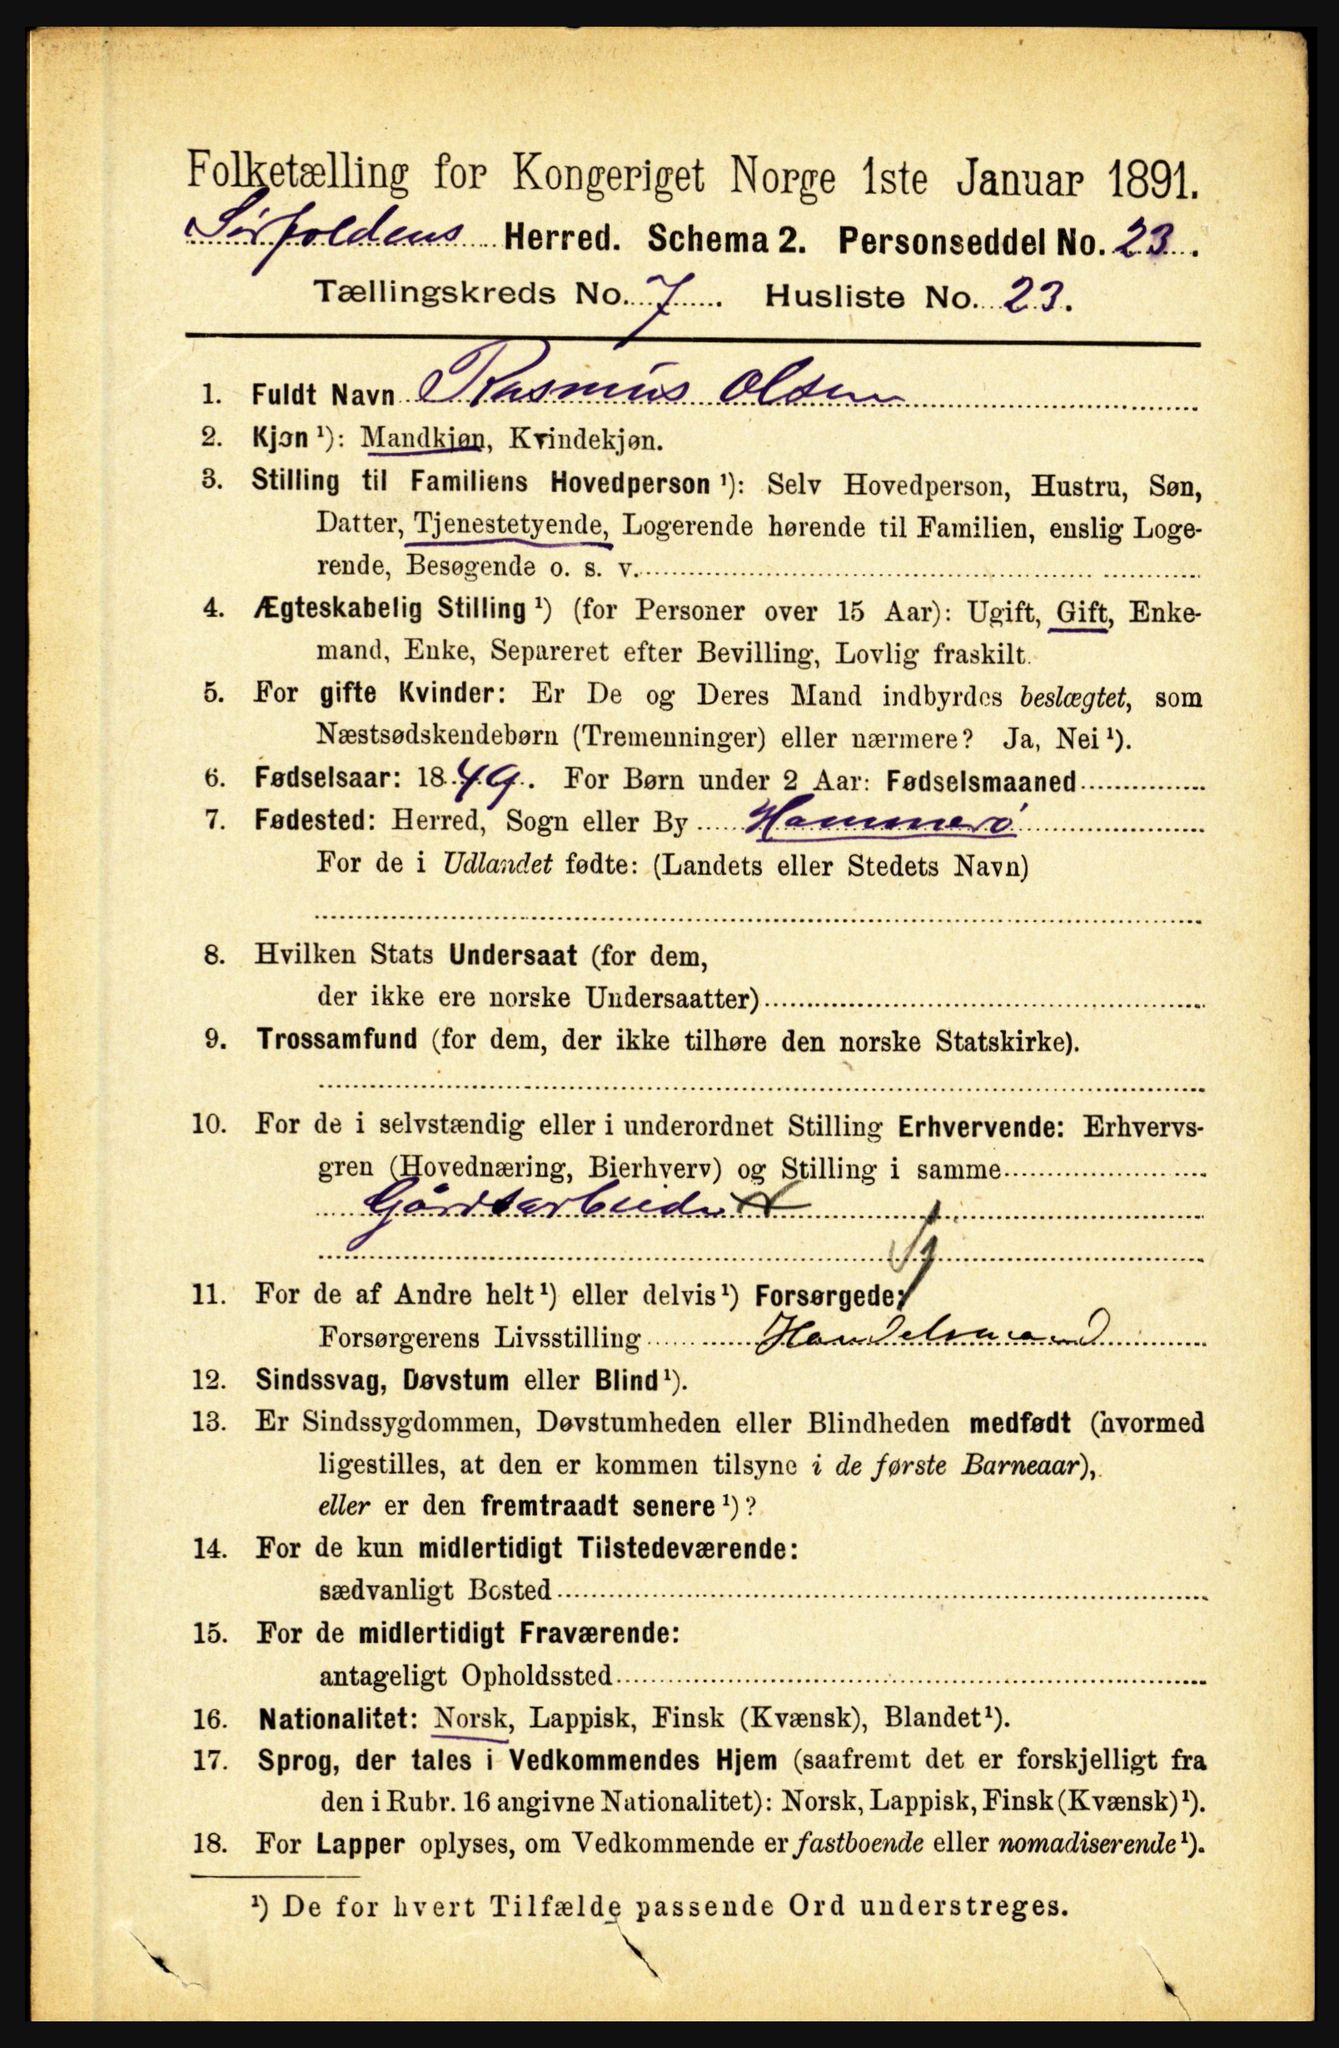 Folketælling for Kongeriget Norge 1ste Januar 1891.
Sørfoldens Herred. Schema 2. Personseddel No. 23.
Tællingskreds No. 7. Husliste No. 23.
1. Fuldt Navn Rasmus Olsen
2. Kjøn ¹): Mandkjøn, Kvindekjøn.
3. Stilling til Familiens Hovedperson ¹): Selv Hovedperson, Hustru, Søn,
Datter, Tjenestetyende, Logerende hørende til Familien, enslig Loge-
rende, Besøgende o. s. v.
4. Ægteskabelig Stilling ¹) (for Personer over 15 Aar): Ugift, Gift, Enke-
mand, Enke, Separeret efter Bevilling, Lovlig fraskilt.
5. For gifte Kvinder: Er De og Deres Mand indbyrdes beslægtet, som
Næstsødskendebørn (Tremenninger) eller nærmere? Ja, Nei ¹).
6. Fødselsaar: 1849. For Børn under 2 Aar: Fødselsmaaned
7. Fødested: Herred, Sogn eller By Hammerø
For de i Udlandet fødte: (Landets eller Stedets Navn)
8. Hvilken Stats Undersaat (for dem,
der ikke ere norske Undersaatter)
9. Trossamfund (for dem, der ikke tilhøre den norske Statskirke).
10. For de i selvstændig eller i underordnet Stilling Erhvervende: Erhvervs-
gren (Hovednæring, Bierhverv) og Stilling i samme
Gårdsarbeider
11. For de af Andre helt ¹) eller delvis ¹) Forsørgede:
Forsørgerens Livsstilling Handelsmand
12. Sindssvag, Døvstum eller Blind ¹).
13. Er Sindssygdommen, Døvstumheden eller Blindheden medfødt (hvormed
ligestilles, at den er kommen tilsyne i de første Barneaar),
eller er den fremtraadt senere ¹)?
14. For de kun midlertidigt Tilstedeværende:
sædvanligt Bosted
15. For de midlertidigt Fraværende:
antageligt Opholdssted
16. Nationalitet: Norsk, Lappisk, Finsk (Kvænsk), Blandet ¹).
17. Sprog, der tales i Vedkommendes Hjem (saafremt det er forskjelligt fra
den i Rubr. 16 angivne Nationalitet): Norsk, Lappisk, Finsk (Kvænsk) ¹).
18. For Lapper oplyses, om Vedkommende er fastboende eller nomadiserende ¹).
¹) De for hvert Tilfælde passende Ord understreges.